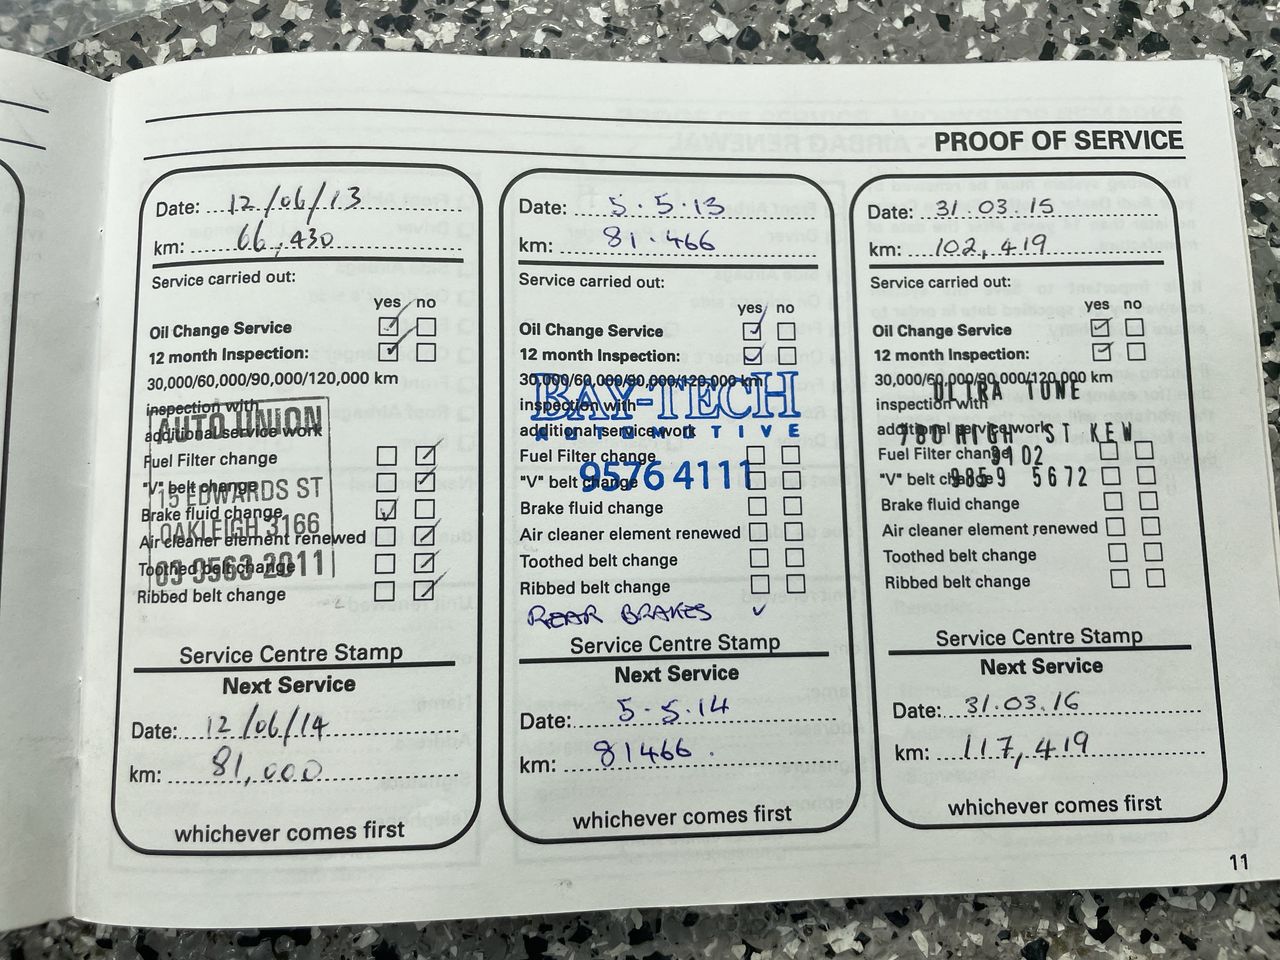 PROOF OF SERVICE
Date: 12/06/13
km: 66,430
Service carried out:
yes no
Oil Change Service
12 month Inspection:
30,000/60,000/90,000/120,000 km
inspection with
additional service work
AUTO UNION
15 EDWARDS ST
OAKLEIGH 3166
03 9563 2011
Fuel Filter change
"V" belt change
Brake fluid change
Air cleaner element renewed
Toothed belt change
Ribbed belt change
Service Centre Stamp
Next Service
Date: 12/06/14
km: 81,000
whichever comes first
Date: 5.5.13
km: 81.466
Service carried out:
yes no
Oil Change Service
12 month Inspection:
30,000/60,000/90,000/120,000 km
inspection with
additional service work
BAY-TECH
AUTOMOTIVE
9576 4111
Fuel Filter change
"V" belt change
Brake fluid change
Air cleaner element renewed
Toothed belt change
Ribbed belt change
REAR BRAKES ✓
Service Centre Stamp
Next Service
Date: 5.5.14
km: 81466.
whichever comes first
Date: 31.03.15
km: 102,419
Service carried out:
yes no
Oil Change Service
12 month Inspection:
30,000/60,000/90,000/120,000 km
inspection with
additional service work
ULTRA TUNE
780 HIGH ST KEW
3102
9859 5672
Fuel Filter change
"V" belt change
Brake fluid change
Air cleaner element renewed
Toothed belt change
Ribbed belt change
Service Centre Stamp
Next Service
Date: 31.03.16
km: 117,419
whichever comes first
11